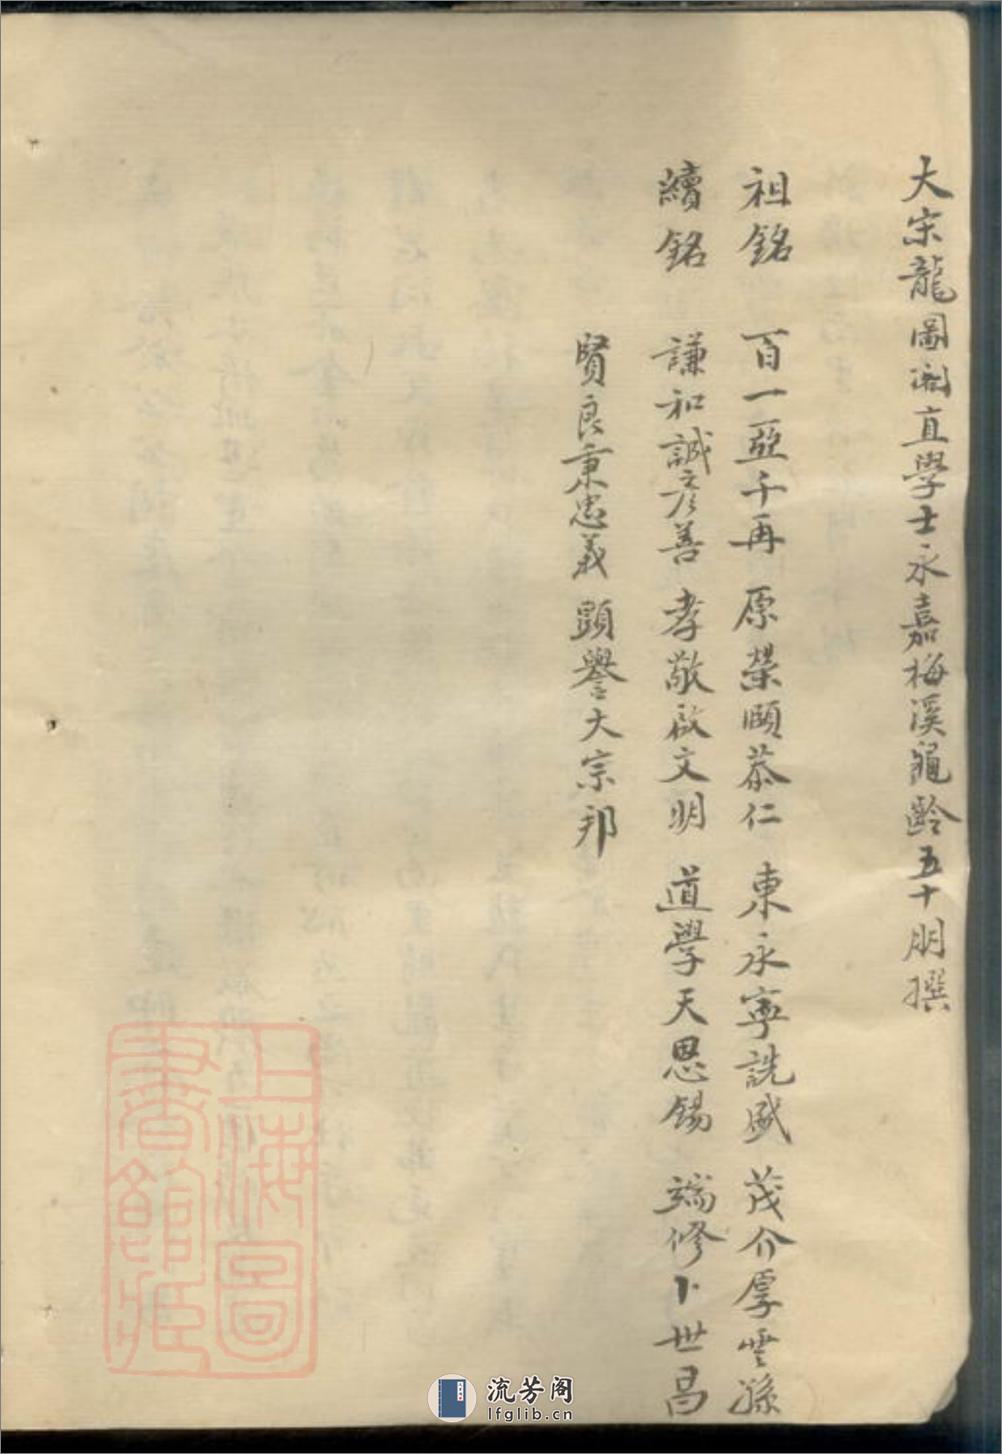 大宋龍圖閣直學士永嘉梅溪龜齡五十朋撰
祖銘 百一亞千再 原榮頤恭仁 東永寧詵盛 茂介厚雲孫
續銘 謙和誠彦善 孝敬啟文明 道學天恩錫 端修卜世昌
賢良秉忠義 顕譽大宗邦
上海圖書館藏
流芳阁
lfglib.cn